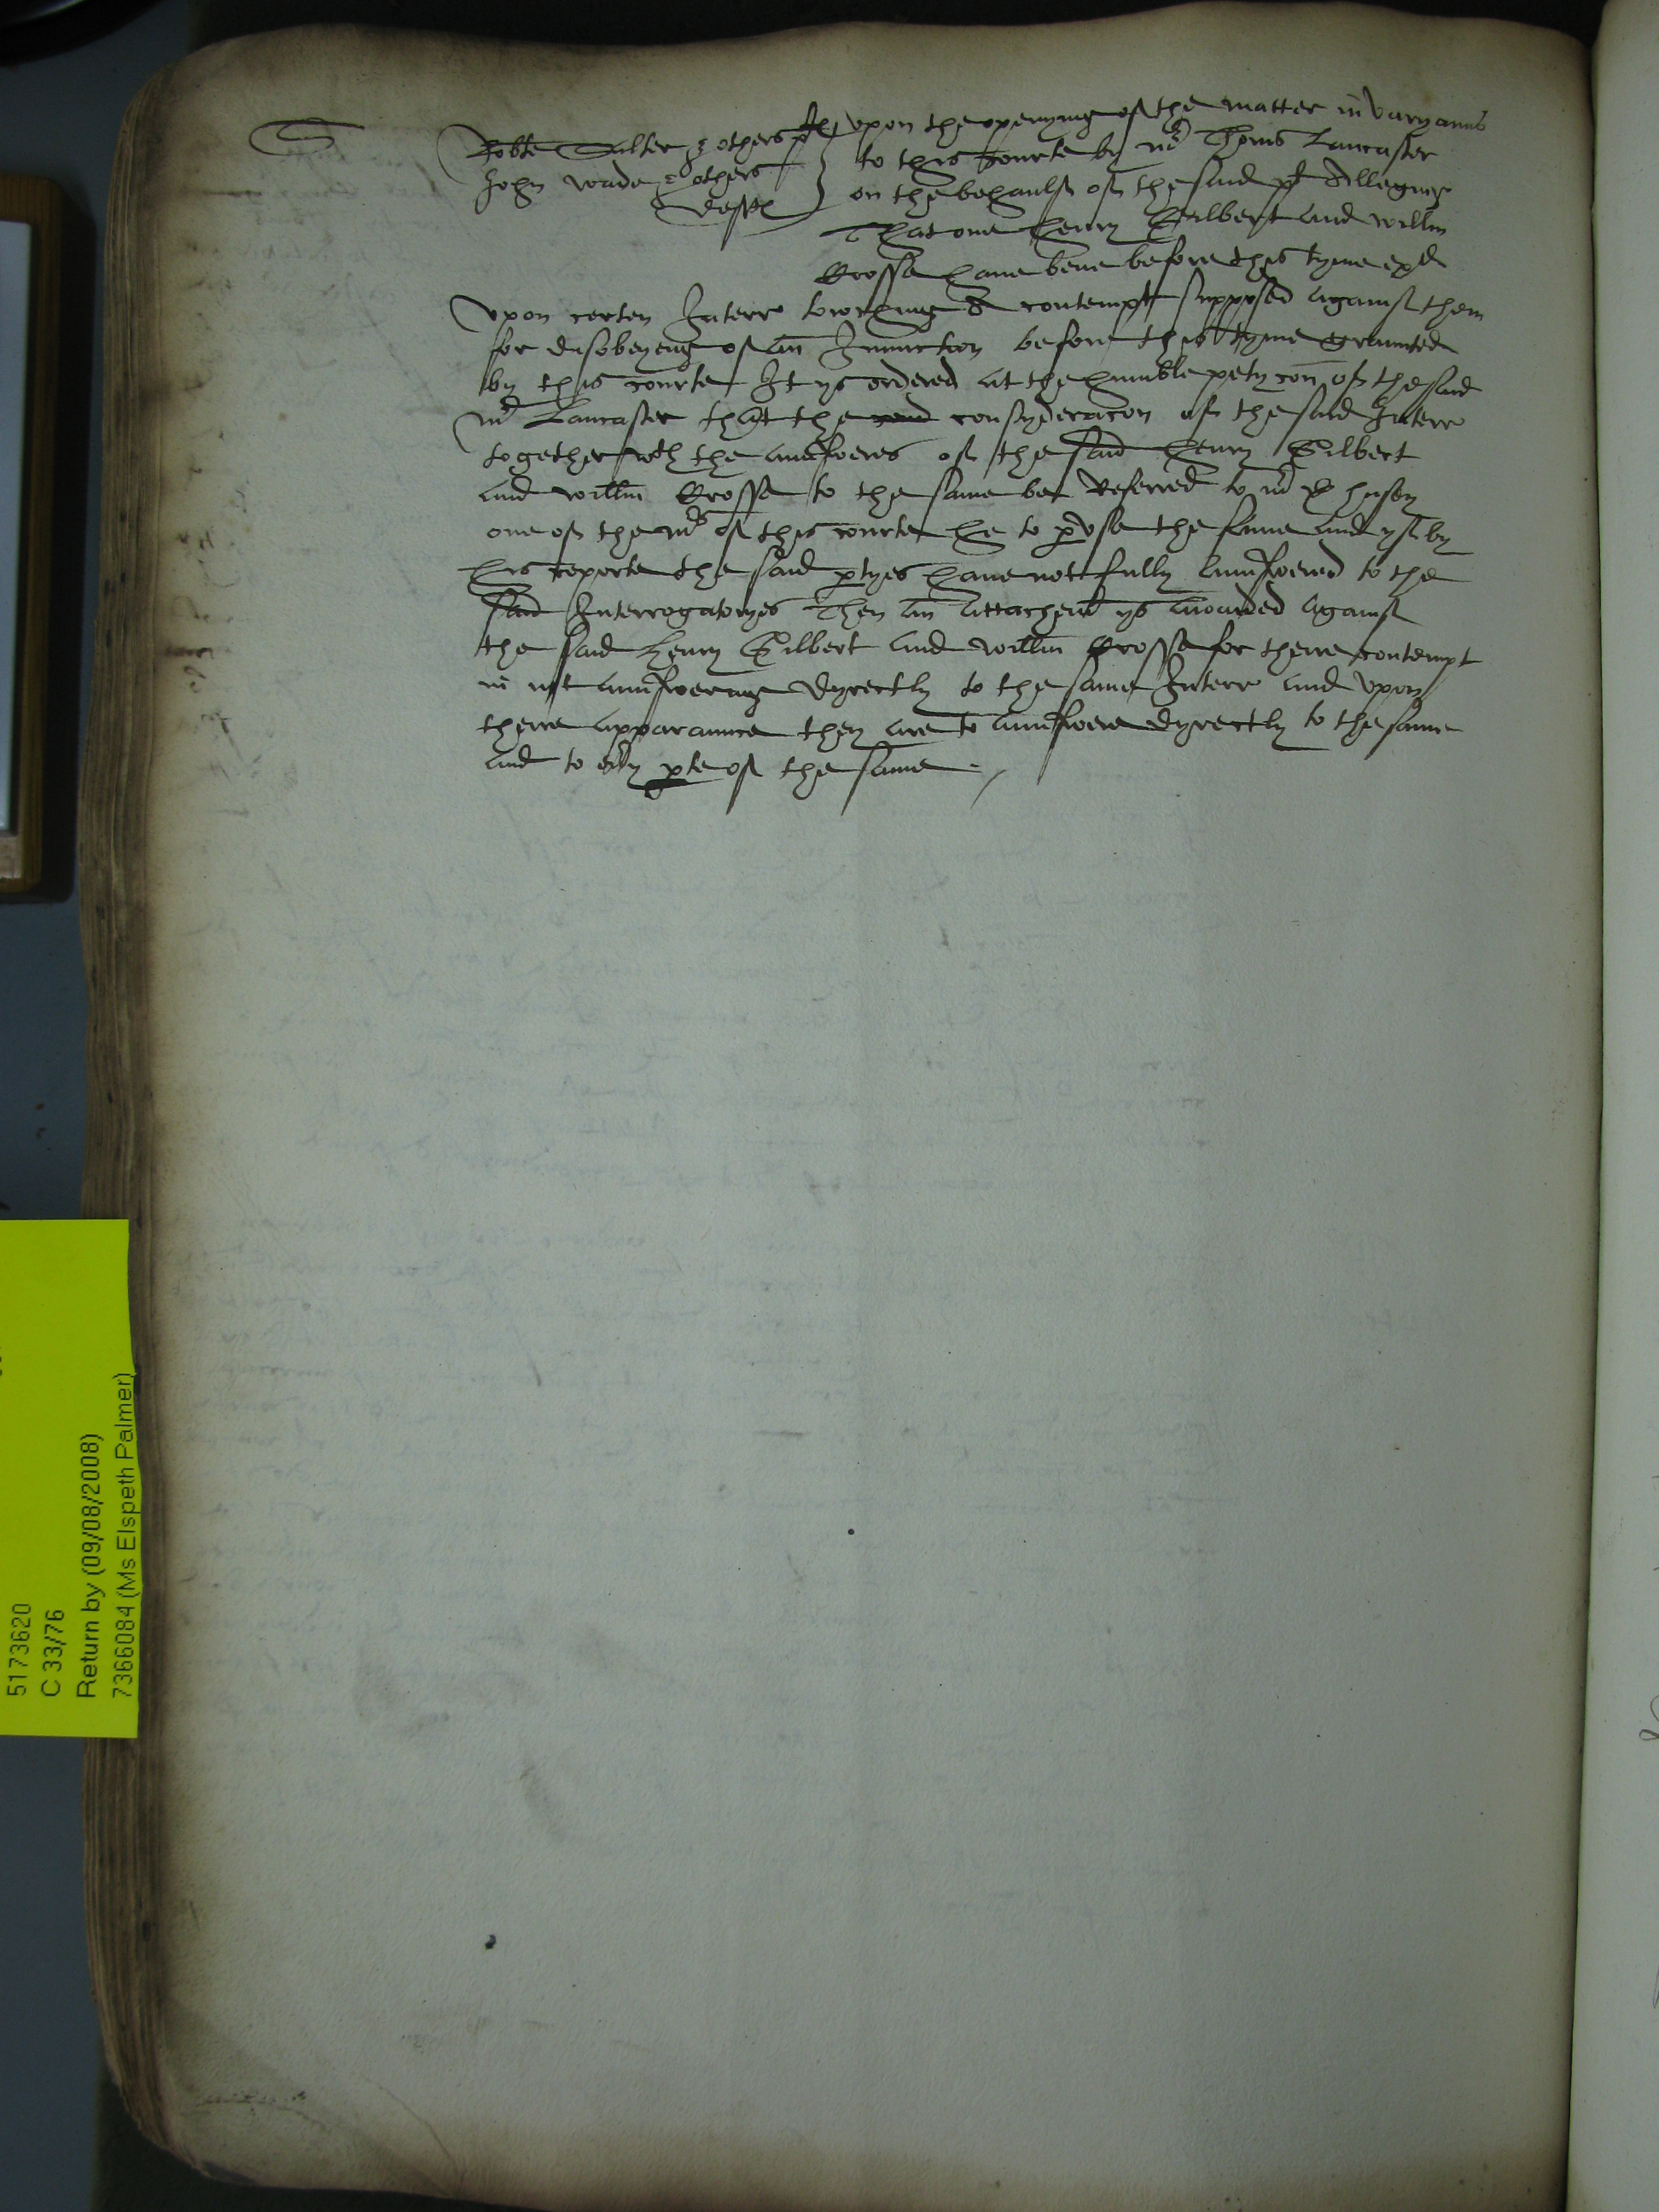 S
Robte Salter & others pl
John Wade & others
deftes
Upon the openyng of the matter in varyaunce
to this Courte by mr Thoms Lancaster
on the behaulf of the said pl Alleging
That one Henry Gilbert and willm
Crosse have bene before this tyme exd
vpon certen Interr towching A contempt supposed against them
for disobeyeng of an Iniunction before this tyme graunted
by this courte It ys ordered at the humble petycon of the said
mr Lancaster that the consyderacon of the said Interr
together wth the aunsweres of the said Henry Gilbert
and willm Crosse to the same be Referred to mr D Husey
one of the mrs of this courte he to pvse the same and yf by
his reporte the said ptyes have not fully aunswered to the
said Interrogatoryes Then an attachemt ys awarded against
the said Henry Gilbert and willm Crosse for there contempt
in not aunswering dyrectly to the same Interr and vpon
there apparaunce they are to aunswere dyrectly to the same
and to evy pte of the same
5173620
C 33/76
Return by (09/08/2008)
7366084 (Ms Elspeth Palmer)